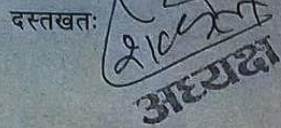 दस्तखतः
अध्यक्ष